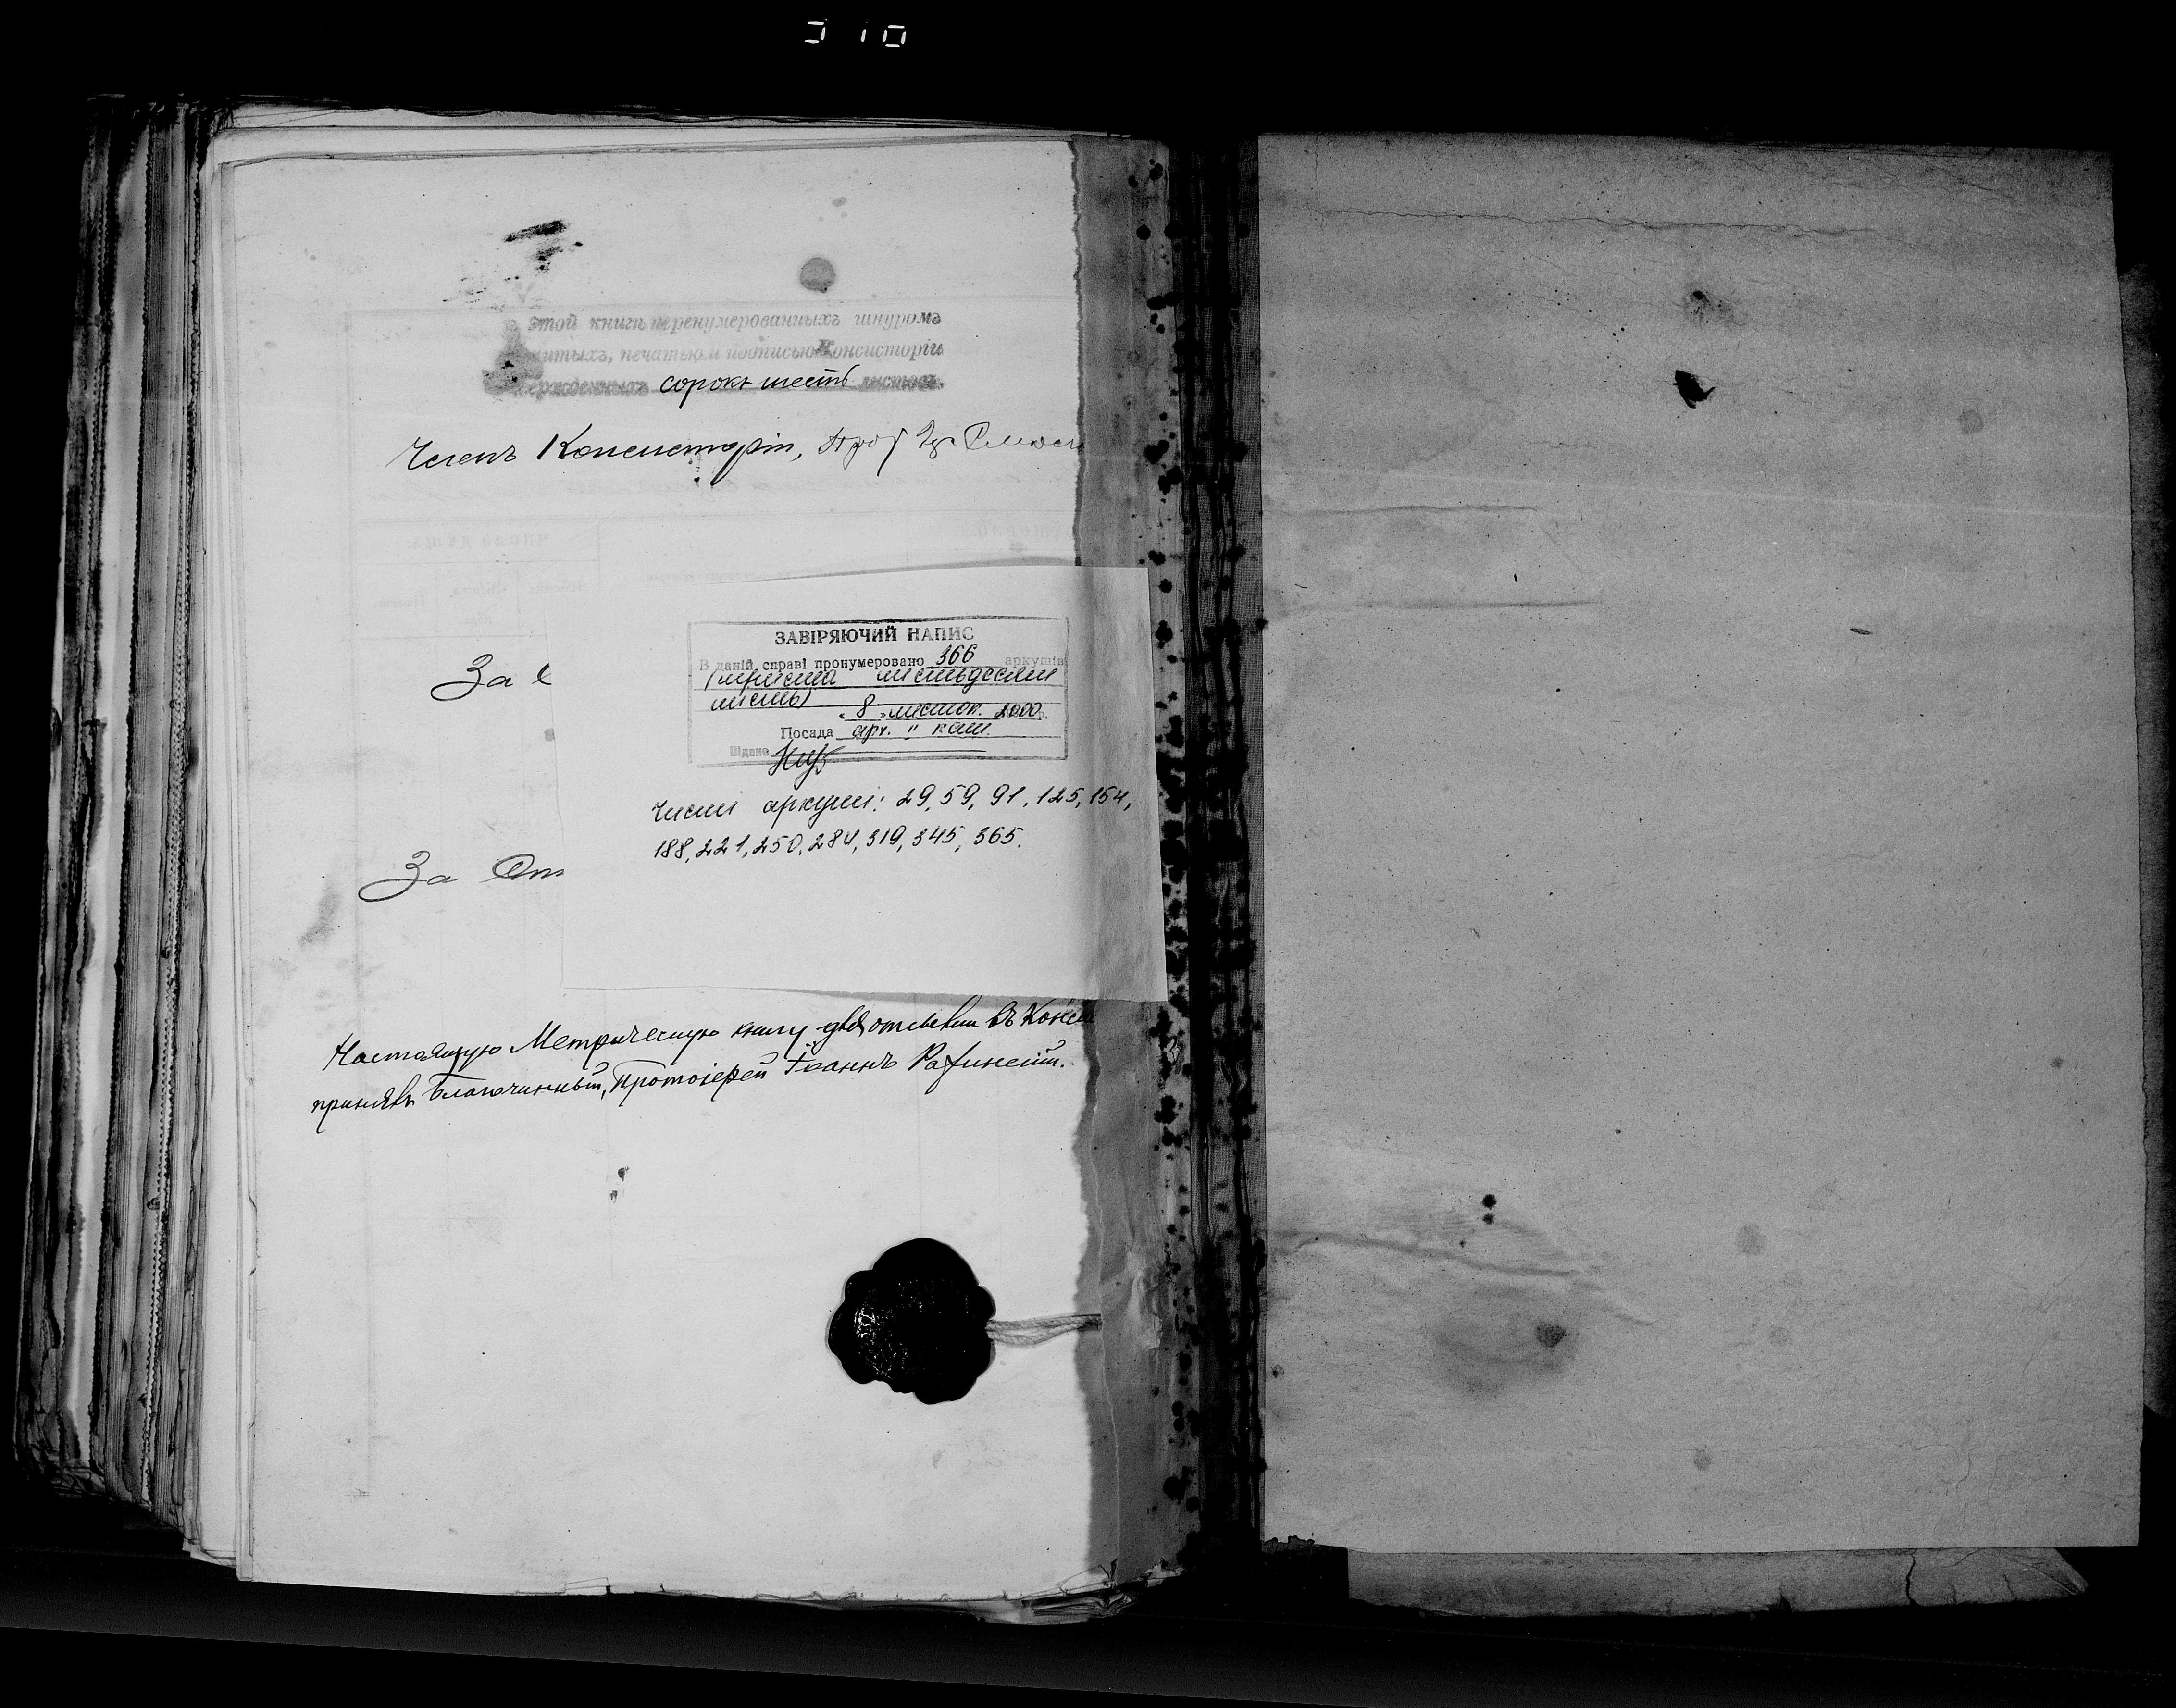 310
этой книгѣ перенумерованныхъ шнуромъ
шитыхъ, печатью и подписью Консисторіи
ержденныхъ сорокъ шесть листовъ.
Членъ Консисторіи,
ЗАВІРЯЮЧИЙ НАПИС
В даній справі пронумеровано 366 аркушів
(триста шістьдесят
шість)
„8„ листоп. 2000р.
Посада арх. "І кат.
Підпис
За
Чисті аркуші: 29, 59, 91, 125, 154,
188, 221, 250, 284, 319, 345, 365.
За
Настоящую Метрическую книгу для отсылки въ Конси
принялъ Благочинный, Протоіерей Іоаннъ